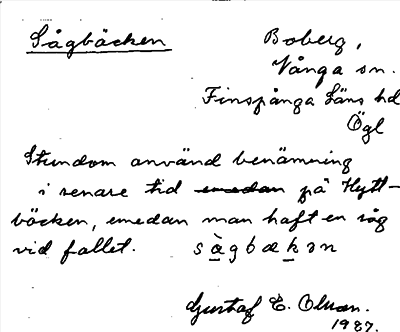 Sågbäcken
Boberg,
Vånga sn.
Finspånga Läns hd
Ögl
Stundom använd benämning
i senare tid emedan på Hytt-
bäcken, emedan man haft en såg
vid fallet. sàgbækən
Gustaf E. Olsson.
1927.